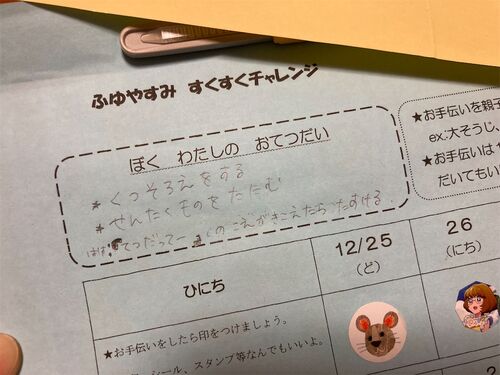 ふゆやすみ すくすくチャレンジ
ぼく わたしの おてつだい
★くつそろえをする
★せんたくものをたたむ
てつだってー のこえがきこえたらたすける
★お手伝いを親子
ex:大そうじ、
★お手伝いは
だいてもい
ひにち
12/25
(ど)
26
(にち)
★お手伝いをしたら印をつけましょう。
シール、スタンプ等なんでもいいよ。